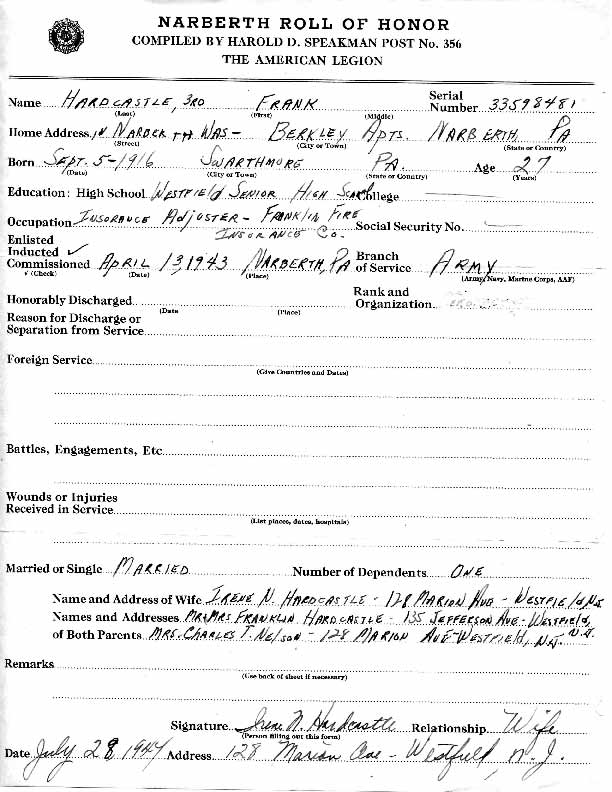 NARBERTH ROLL OF HONOR
COMPILED BY HAROLD D. SPEAKMAN POST No. 356
THE AMERICAN LEGION
Name HARDCASTLE, 3RD FRANK Serial Number 33598481
(Last) (First) (Middle)
Home Address WAS - BERKLEY APTS. NARBERTH, PA
(Street) (City or Town) (State or Country)
Born SEPT. 5-1916 SWARTHMORE PA. Age 27
(Date) (City or Town) (State or Country) (Years)
Education: High School WESTFIELD SENIOR HIGH SCHOOL College
Occupation INSURANCE ADJUSTER - FRANKLIN FIRE
INSURANCE CO. Social Security No.
Enlisted
Inducted ✓
Commissioned APRIL 13, 1943 NARBERTH, PA Branch of Service ARMY
✓ (Check) (Date) (Place) (Army, Navy, Marine Corps, AAF)
Honorably Discharged Rank and Organization
(Date (Place)
Reason for Discharge or
Separation from Service
Foreign Service
(Give Countries and Dates)
Battles, Engagements, Etc
Wounds or Injuries
Received in Service
(List places, dates, hospitals)
Married or Single MARRIED Number of Dependents ONE
Name and Address of Wife IRENE N. HARDCASTLE - 128 MARION AVE - WESTFIELD N.J.
Names and Addresses MR & MRS FRANKLIN HARDCASTLE - 135 JEFFERSON AVE - WESTFIELD, N.J.
of Both Parents MRS. CHARLES T. NELSON - 128 MARION AVE - WESTFIELD, N.J.
Remarks
(Use back of sheet if necessary)
Signature Irene N. Hardcastle Relationship Wife
(Person filling out this form)
Date July 28, 1944 Address 128 Marion Ave - Westfield, N.J.